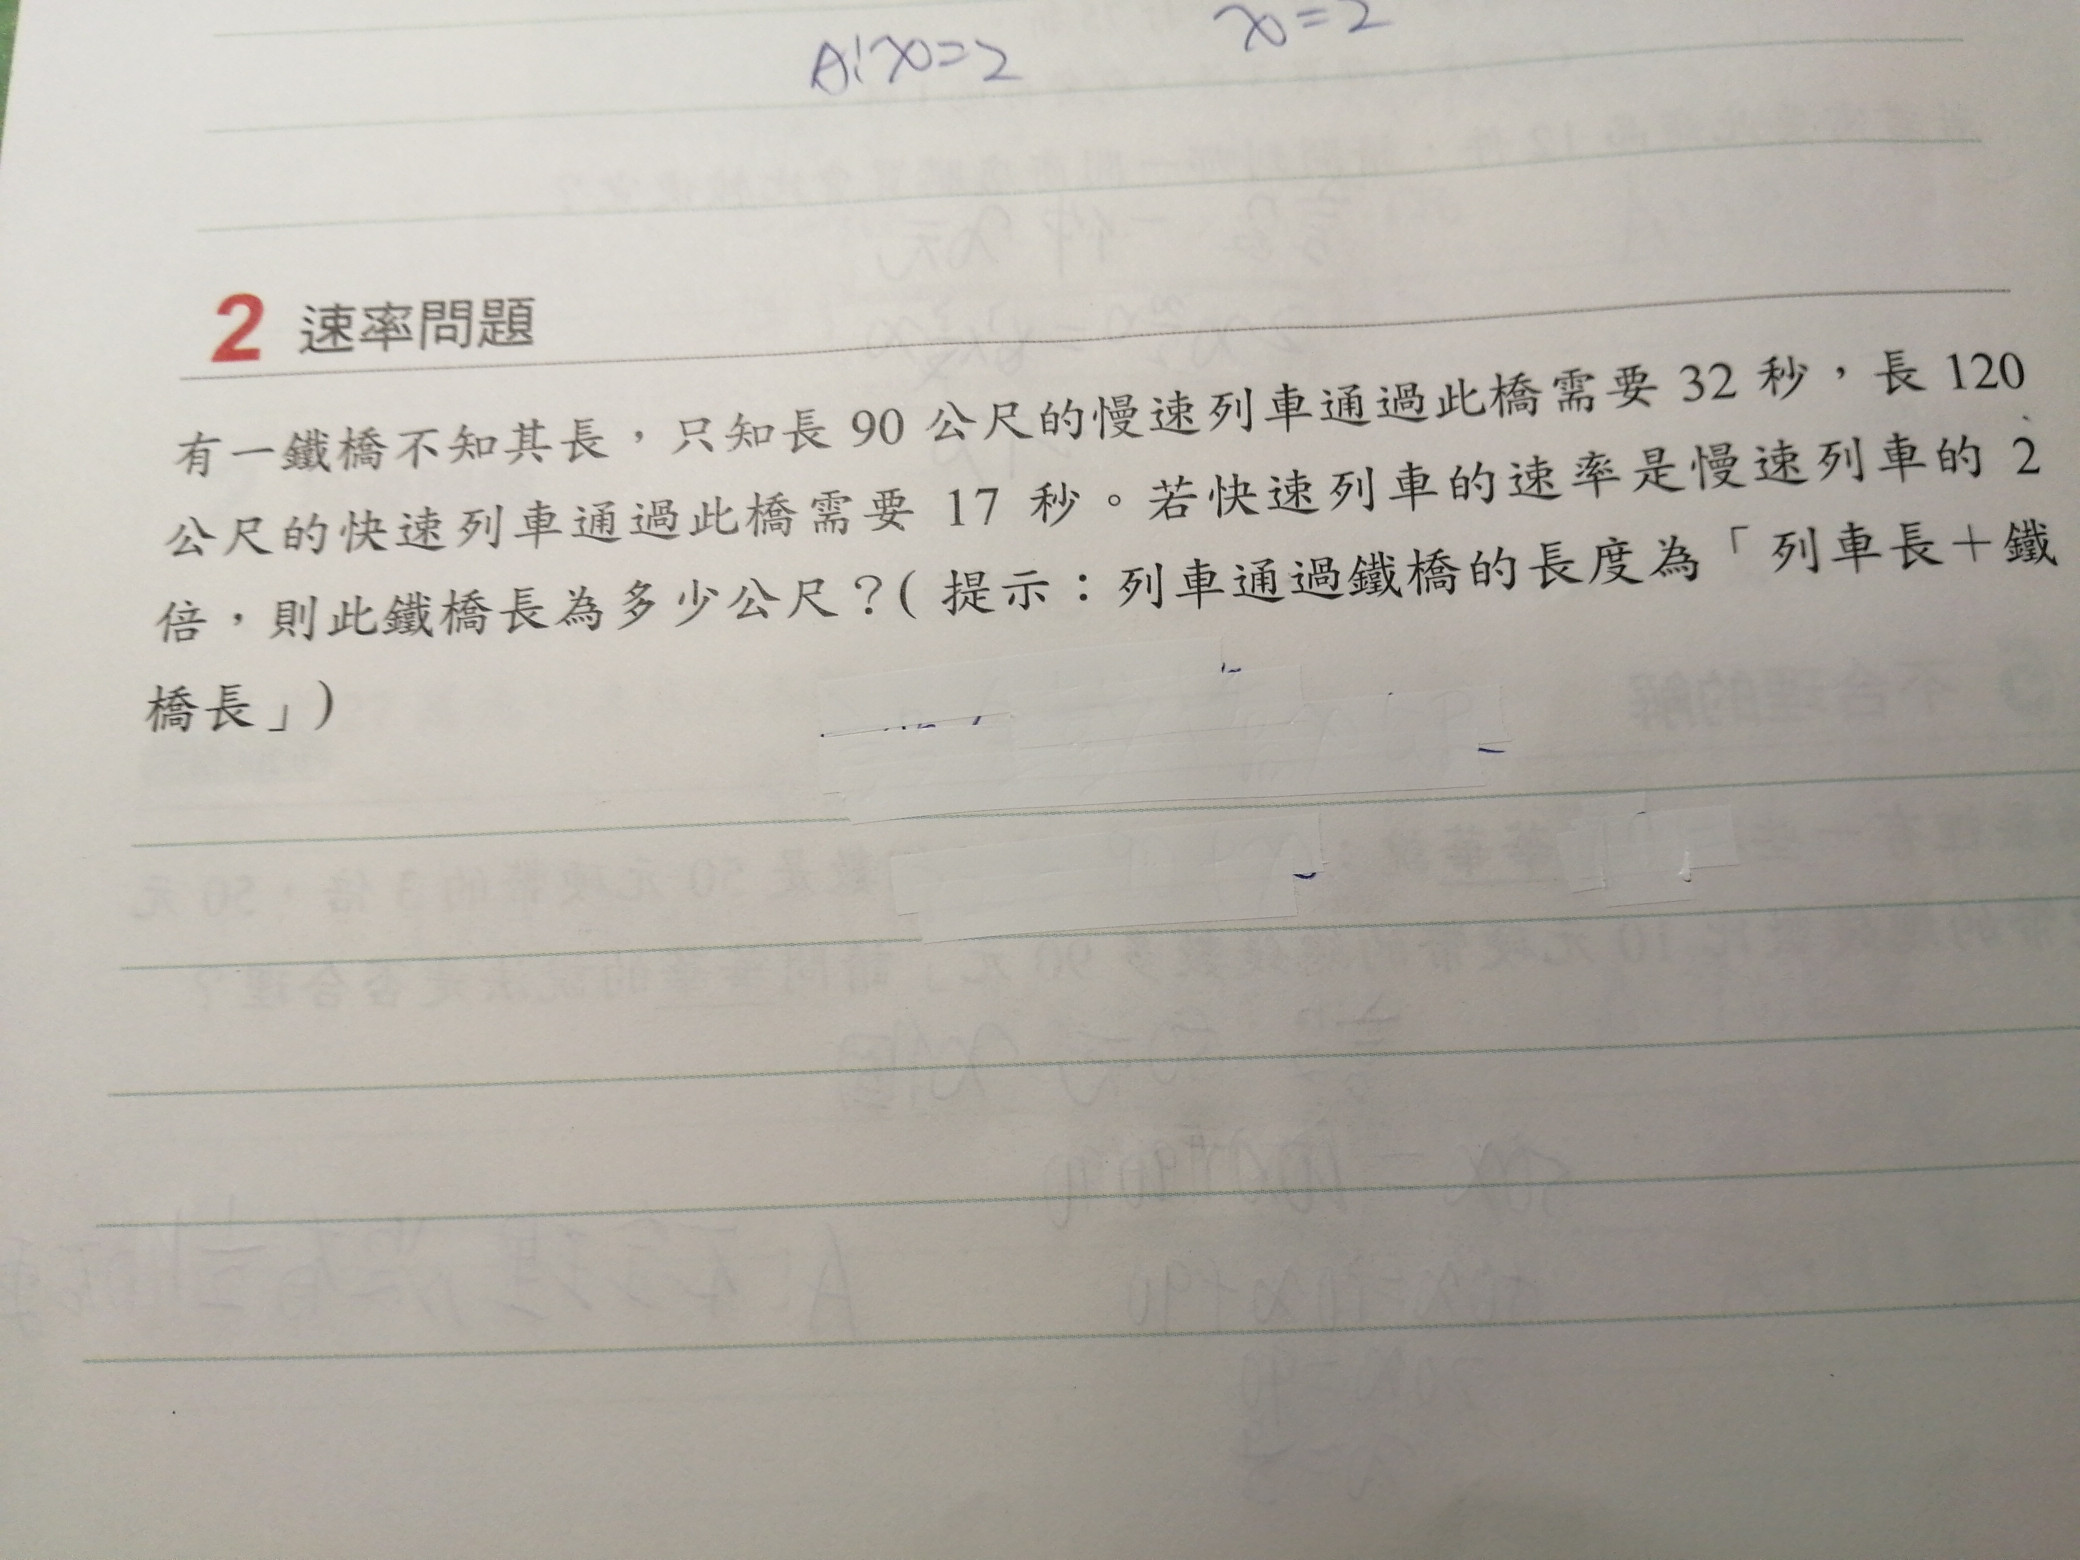 A:x=2
x=2
2 速率問題
有一鐵橋不知其長，只知長 90 公尺的慢速列車通過此橋需要 32 秒，長 120
公尺的快速列車通過此橋需要 17 秒。若快速列車的速率是慢速列車的 2
倍，則此鐵橋長為多少公尺？( 提示：列車通過鐵橋的長度為「列車長＋鐵
橋長」)